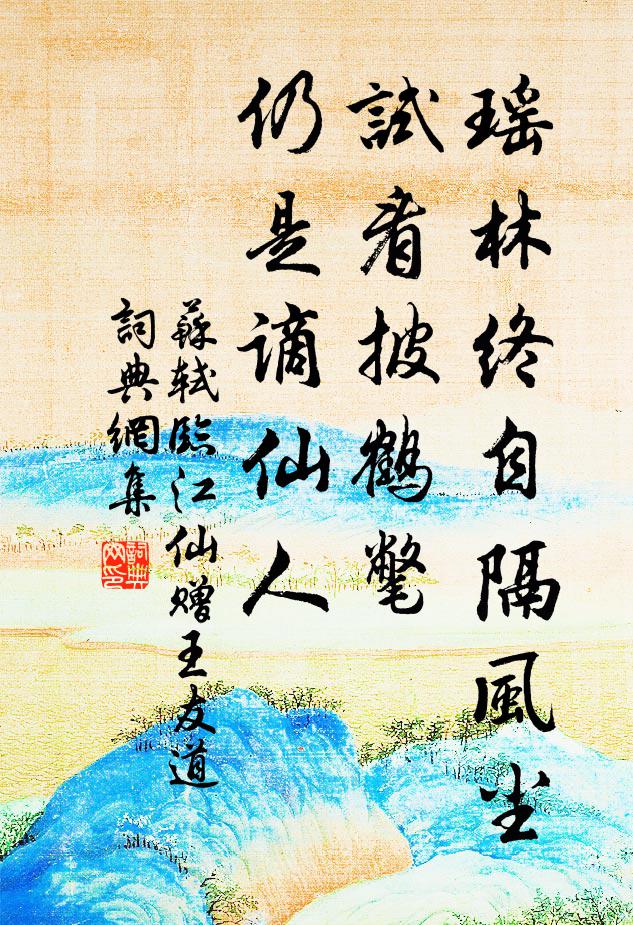 瑶林終自隔風尘
試看披鶴氅
仍是謫仙人
蘇軾臨江仙贈王友道
詞典網集
詞典网印